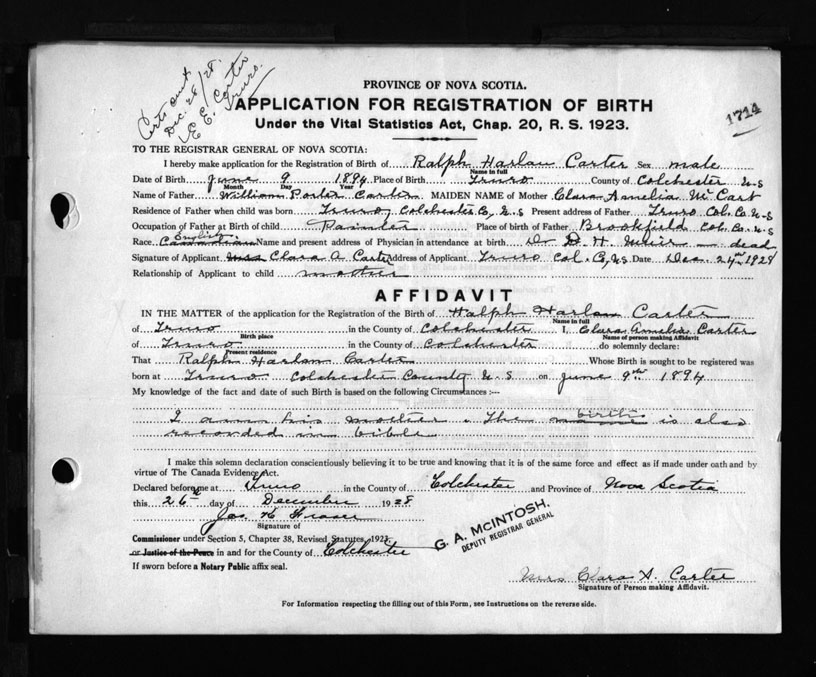 Certs out
Dec. 28/28.
E. E. Carter
Truro.
1714
PROVINCE OF NOVA SCOTIA.
APPLICATION FOR REGISTRATION OF BIRTH
Under the Vital Statistics Act, Chap. 20, R. S. 1923.
TO THE REGISTRAR GENERAL OF NOVA SCOTIA:
I hereby make application for the Registration of Birth of Ralph Harlan Carter Sex male
Name in full
Date of Birth June 9 1894 Place of Birth Truro County of Colchester N.S
Month Day Year
Name of Father William Porter Carter MAIDEN NAME of Mother Clara Amelia McCart
Residence of Father when child was born Truro, Colchester Co, N.S Present address of Father Truro Col. Co. N-S
Occupation of Father at Birth of child Painter Place of birth of Father Brookfield Col. Co. N-S
English.
Race Canadian Name and present address of Physician in attendance at birth Dr D. H. Muir - dead
Signature of Applicant Mrs Clara A. Carter Address of Applicant Truro Col. Co, NS Date Dec. 24th 1928
Relationship of Applicant to child mother
AFFIDAVIT
IN THE MATTER of the application for the Registration of the Birth of Ralph Harlan Carter
Name in full
of Truro in the County of Colchester I, Clara Amelia Carter
Birth place Name of person making Affidavit
of Truro in the County of Colchester do solemnly declare:
Present residence
That Ralph Harlan Carter Whose Birth is sought to be registered was
born at Truro Colchester County N.S on June 9th 1894
My knowledge of the fact and date of such Birth is based on the following Circumstances :—
birth
I am his mother. The name is also
recorded in bible
I make this solemn declaration conscientiously believing it to be true and knowing that it is of the same force and effect as if made under oath and by
virtue of The Canada Evidence Act.
Declared before me at Truro in the County of Colchester and Province of Nova Scotia
this 26 day of December 1928
Jas. K Fraser
Signature of
Commissioner under Section 5, Chapter 38, Revised Statutes, 1923,
or Justice of the Peace in and for the County of Colchester
If sworn before a Notary Public affix seal.
G. A. McINTOSH.
DEPUTY REGISTRAR GENERAL
Mrs Clara A. Carter
Signature of Person making Affidavit.
For Information respecting the filling out of this Form, see Instructions on the reverse side.